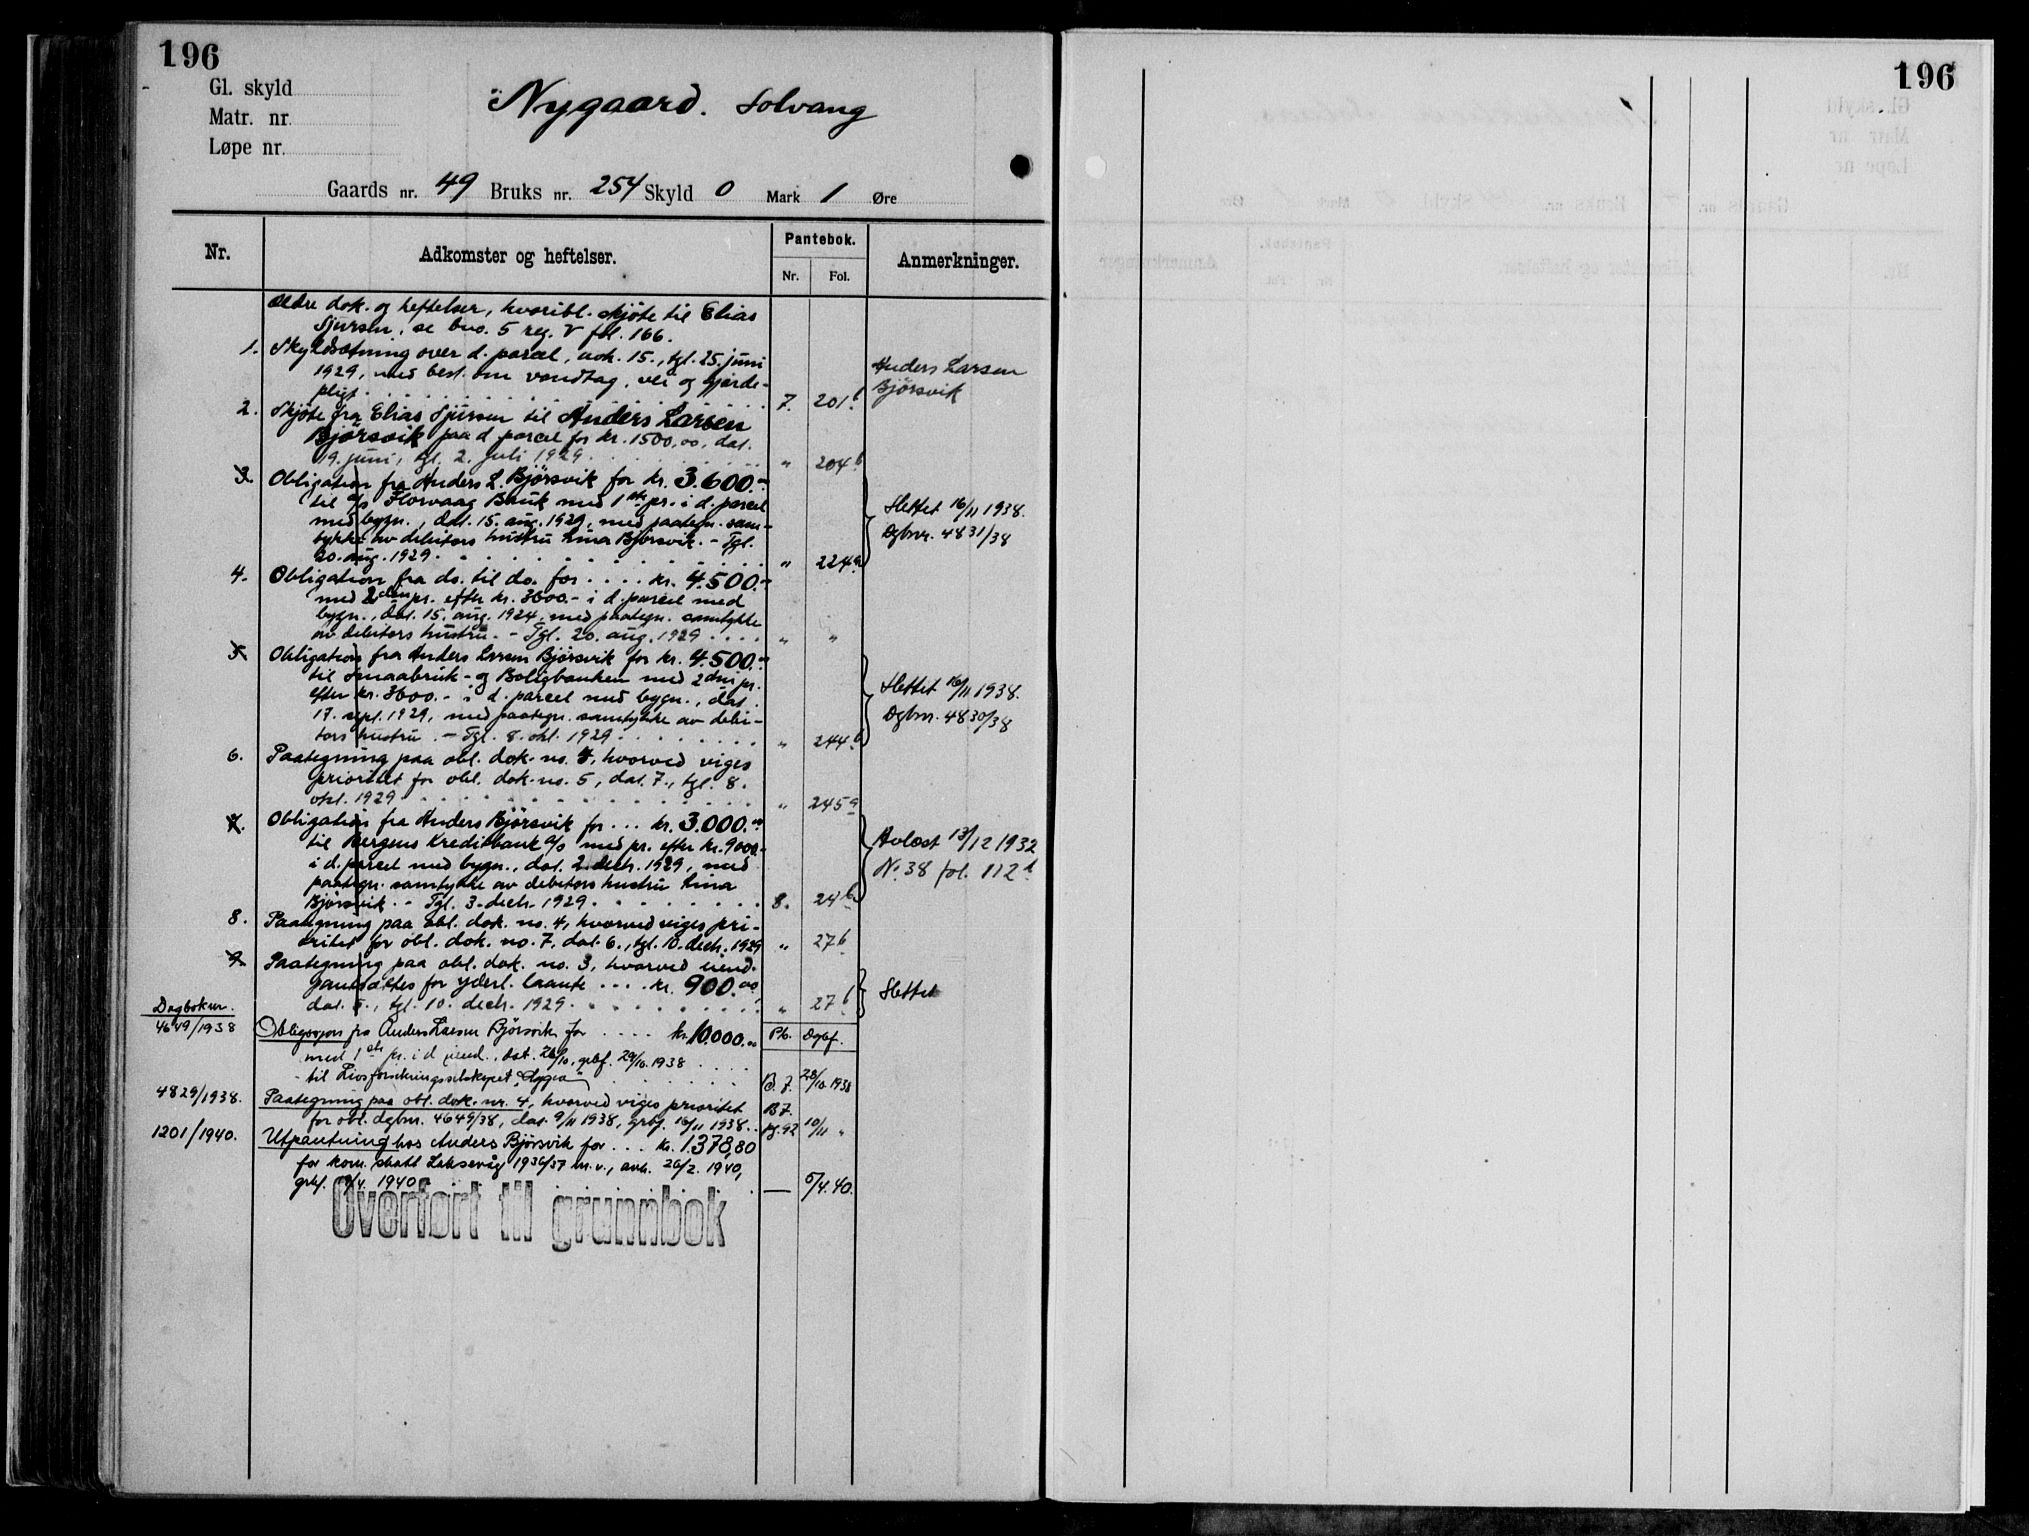 196
Gl. skyld
Matr. nr.
Løpe nr.
Nygaard. Solvang
Gaards nr. 49 Bruks nr. 254 Skyld 0 Mark 1 Øre
Nr. Adkomster og heftelser. Pantebok. Nr. Fol. Anmerkninger.
Ældre dok. og heftelser, hvoribl. skjøte til Elias
Sjursen, se bno. 5 reg. V fol. 166.
1. Skyldsætning over d. parcel, avh. 15., tgl. 25. juni
1929, med best. om vandtag, vei og gjærde-
pligt. 7. 201b
Anders Larsen
Bjørsvik
2. Skjøte fra Elias Sjursen til Anders Larsen
Bjørsvik paa d. parcel for kr. 1500,00, dat.
19. juni, tgl. 2. juli 1929 " 204b
3. Obligation fra Anders L. Bjørsvik for kr. 3.600.-
til a/s Florvaag Bruk med 1ste pr. i d. parcel
med bygn., dat. 15. aug. 1929, med paategn. sam-
tykke av debitors hustru Lina Bjørsvik. - Tgl.
20. aug. 1929 " 224a
Slettet 16/11 1938.
Dgbnr. 4831/38
4. Obligation fra do. til do. for .... kr. 4.500.-
med 2den pr. efter kr. 3600.- i d. parcel med
bygn., dat. 15. aug. 1924, med paategn. samtykke
av debitors hustru. - Tgl. 20. aug. 1929 .... " "
5. Obligation fra Anders Larsen Bjørsvik for kr. 4.500.-
til Smaabruk- og Boligbanken med 2den pr.
efter kr. 3600.- i d. parcel med bygn., dat.
17. sept. 1929, med paategn. samtykke av debi-
tors hustru. - Tgl. 8. okt. 1929 " 244b
Slettet 16/11 1938.
Dgbnr. 4830/38
6. Paategning paa obl. dok. no. 4, hvorved viges
prioritet for obl. dok. no. 5, dat. 7., tgl. 8.
okt. 1929 " 245a
7. Obligation fra Anders Bjørsvik for ... kr. 3.000.00
til Bergens Kreditbank a/s med pr. efter kr. 9000.-
i d. parcel med bygn., dat. 2. decb. 1929, med
paategn. samtykke av debitors hustru Lina
Bjørsvik. - Tgl. 3. decb. 1929 8. 24b
Avlæst 13/12 1932
No. 38 fol. 112b
8. Paategning paa obl. dok. no. 4, hvorved viges pri-
oritet for obl. dok. no. 7, dat. 6., tgl. 10. decb. 1929 " 27b
9. Paategning paa obl. dok. no. 3, hvorved eiend.
pantsættes for yderl. laante .... kr. 900.00
dat. 5., tgl. 10. decb. 1929 " 27b
Slettet
Dagboknr. Pb. Dgbf.
4649/1938 Obligasjon fra Anders Larsen Bjørsvik for .... kr. 10.000.00
med 1ste pr. i d. eiend., dat. 26/10, grbf. 29/10. 1938 ....
til Livsforsikringsselskapet "Hygea" B. 7. 28/10. 1938
4829/1938. Paategning paa obl. dok. nr. 4, hvorved viges prioritet
for obl. dgbnr. 4649/38, dat. 9/11 1938, grbf. 16/11 1938 .. B7. pg. 92 10/11 "
1201/1940. Utpantning hos Anders Bjørsvik for ... kr. 1.378,80
for kom. skatt Laksevåg 1936/37 m. v., avh. 26/2. 1940,
grbf. /4. 1940 — 5/4. 40.
Overført til grunnbok
196